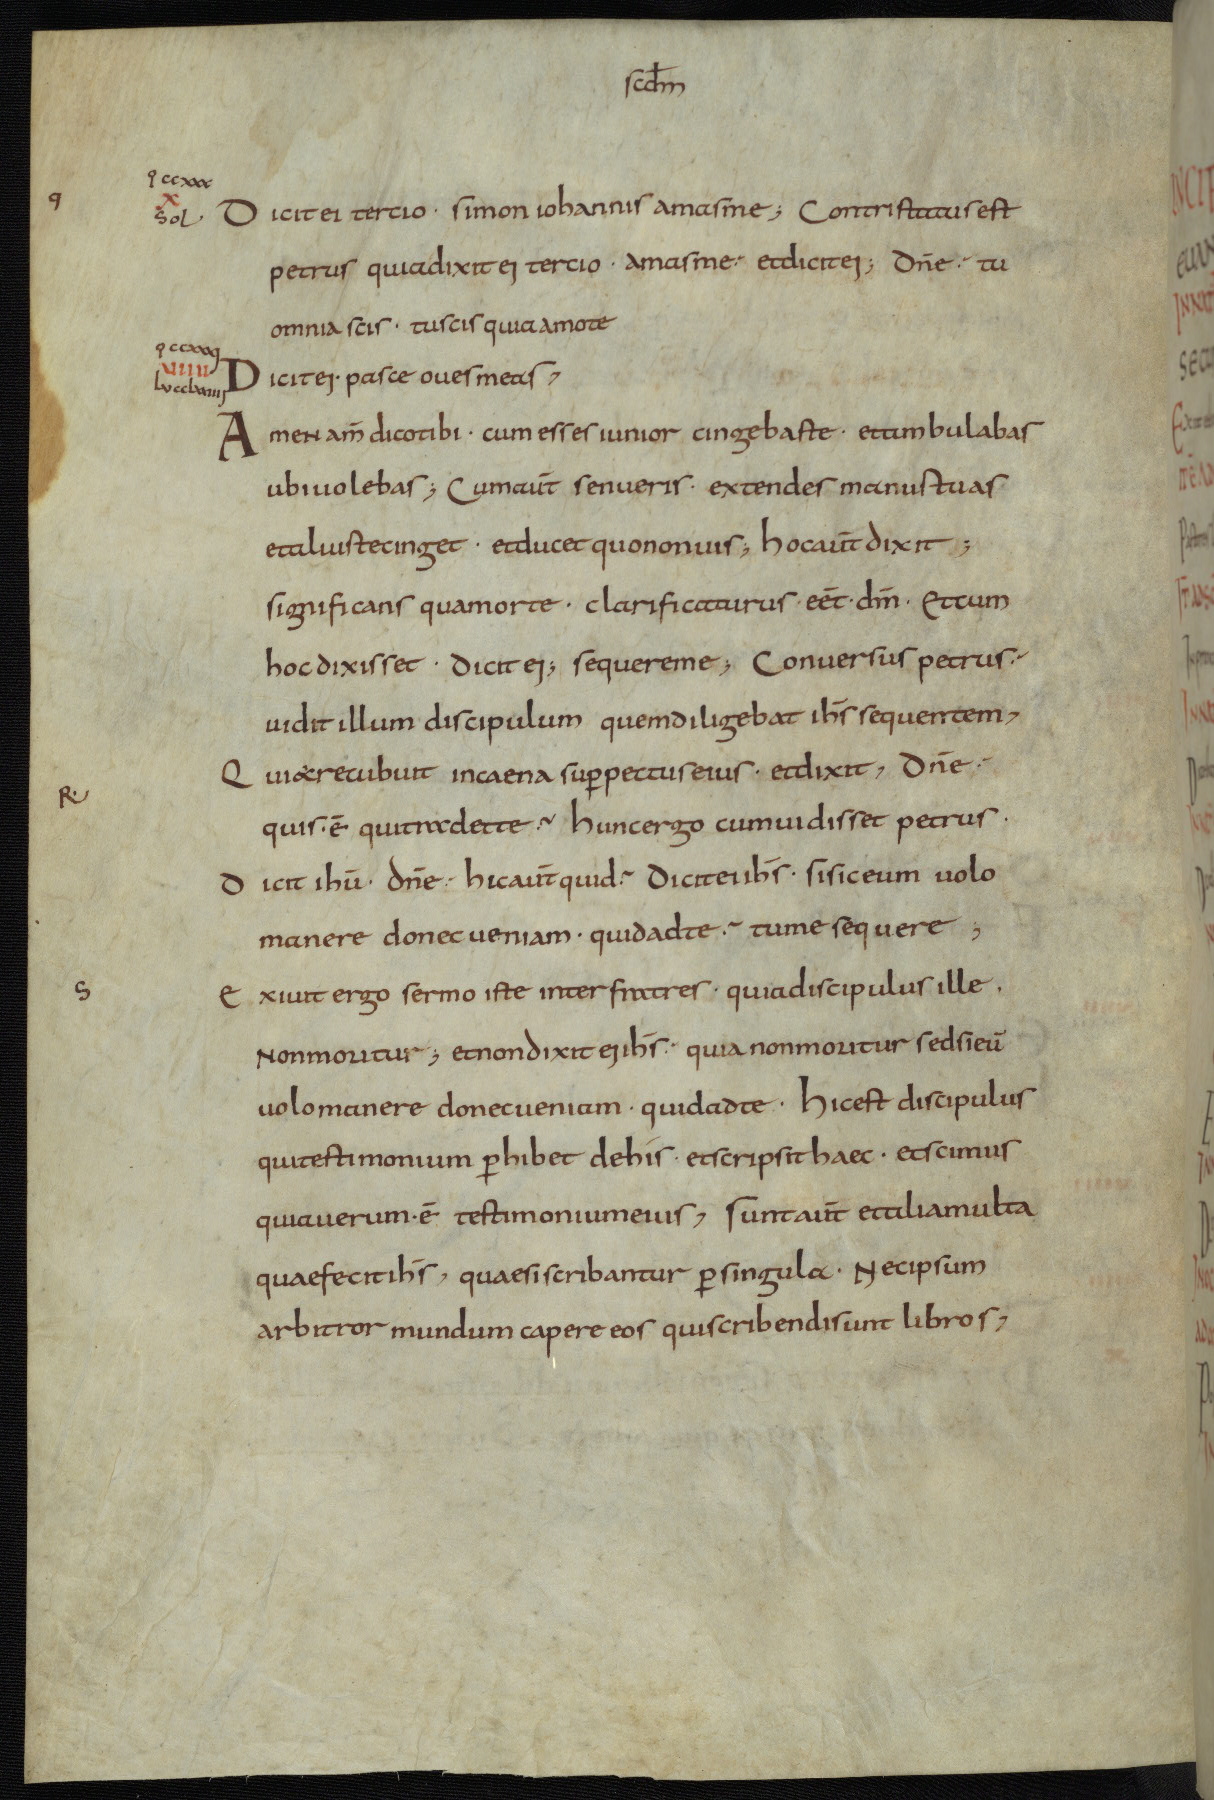 scdm̄
q
ꝯ ccxxx
x
sol.
Dicit ei tertio · simon iohannis amasme; Contristatus est
petrus quia dixit ei tertio · amasme · et dicit ei; Dn̄e · tu
omnia scis · tu scis quia amo te
ꝯ ccxxxi
viiii
lv cclxxiiii
Dicit ei · pasce oues meas,
Amen am̄ dico tibi · cum esses iunior cingebas te · et ambulabas
ubi uolebas; Cum aūt senueris · extendes manus tuas
et alius te cinget · et ducet quo non uis; hoc aūt dixit;
significans qua morte · clarificaturus · eēt · dm̄ · Et cum
hoc dixisset · dicit ei; sequere me; Conuersus petrus ·
uidit illum discipulum quem diligebat ih̄s sequentem,
Qui & recubuit in caena sup̄ pectus eius · et dixit, Dn̄e ·
R
quis · ē qui tradet te · hunc ergo cum uidisset petrus ·
dicit ihū · dn̄e · hic aūt quid · Dicit ei ih̄s · si sic eum uolo
manere donec ueniam · quid ad te · tu me sequere ;
S
Exiuit ergo sermo iste inter fratres · quia discipulus ille ·
Non moritur; et non dixit ei ih̄s · quia non moritur sed si eū
uolo manere donec ueniam · quid ad te · hic est discipulus
qui testimonium p̄hibet de his · et scripsit haec · et scimus
quia uerum · ē testimonium eius, Sunt aūt et alia multa
quae fecit ih̄s, quae si scribantur p̄ singula · Nec ipsum
arbitror mundum capere eos qui scribendi sunt libros,